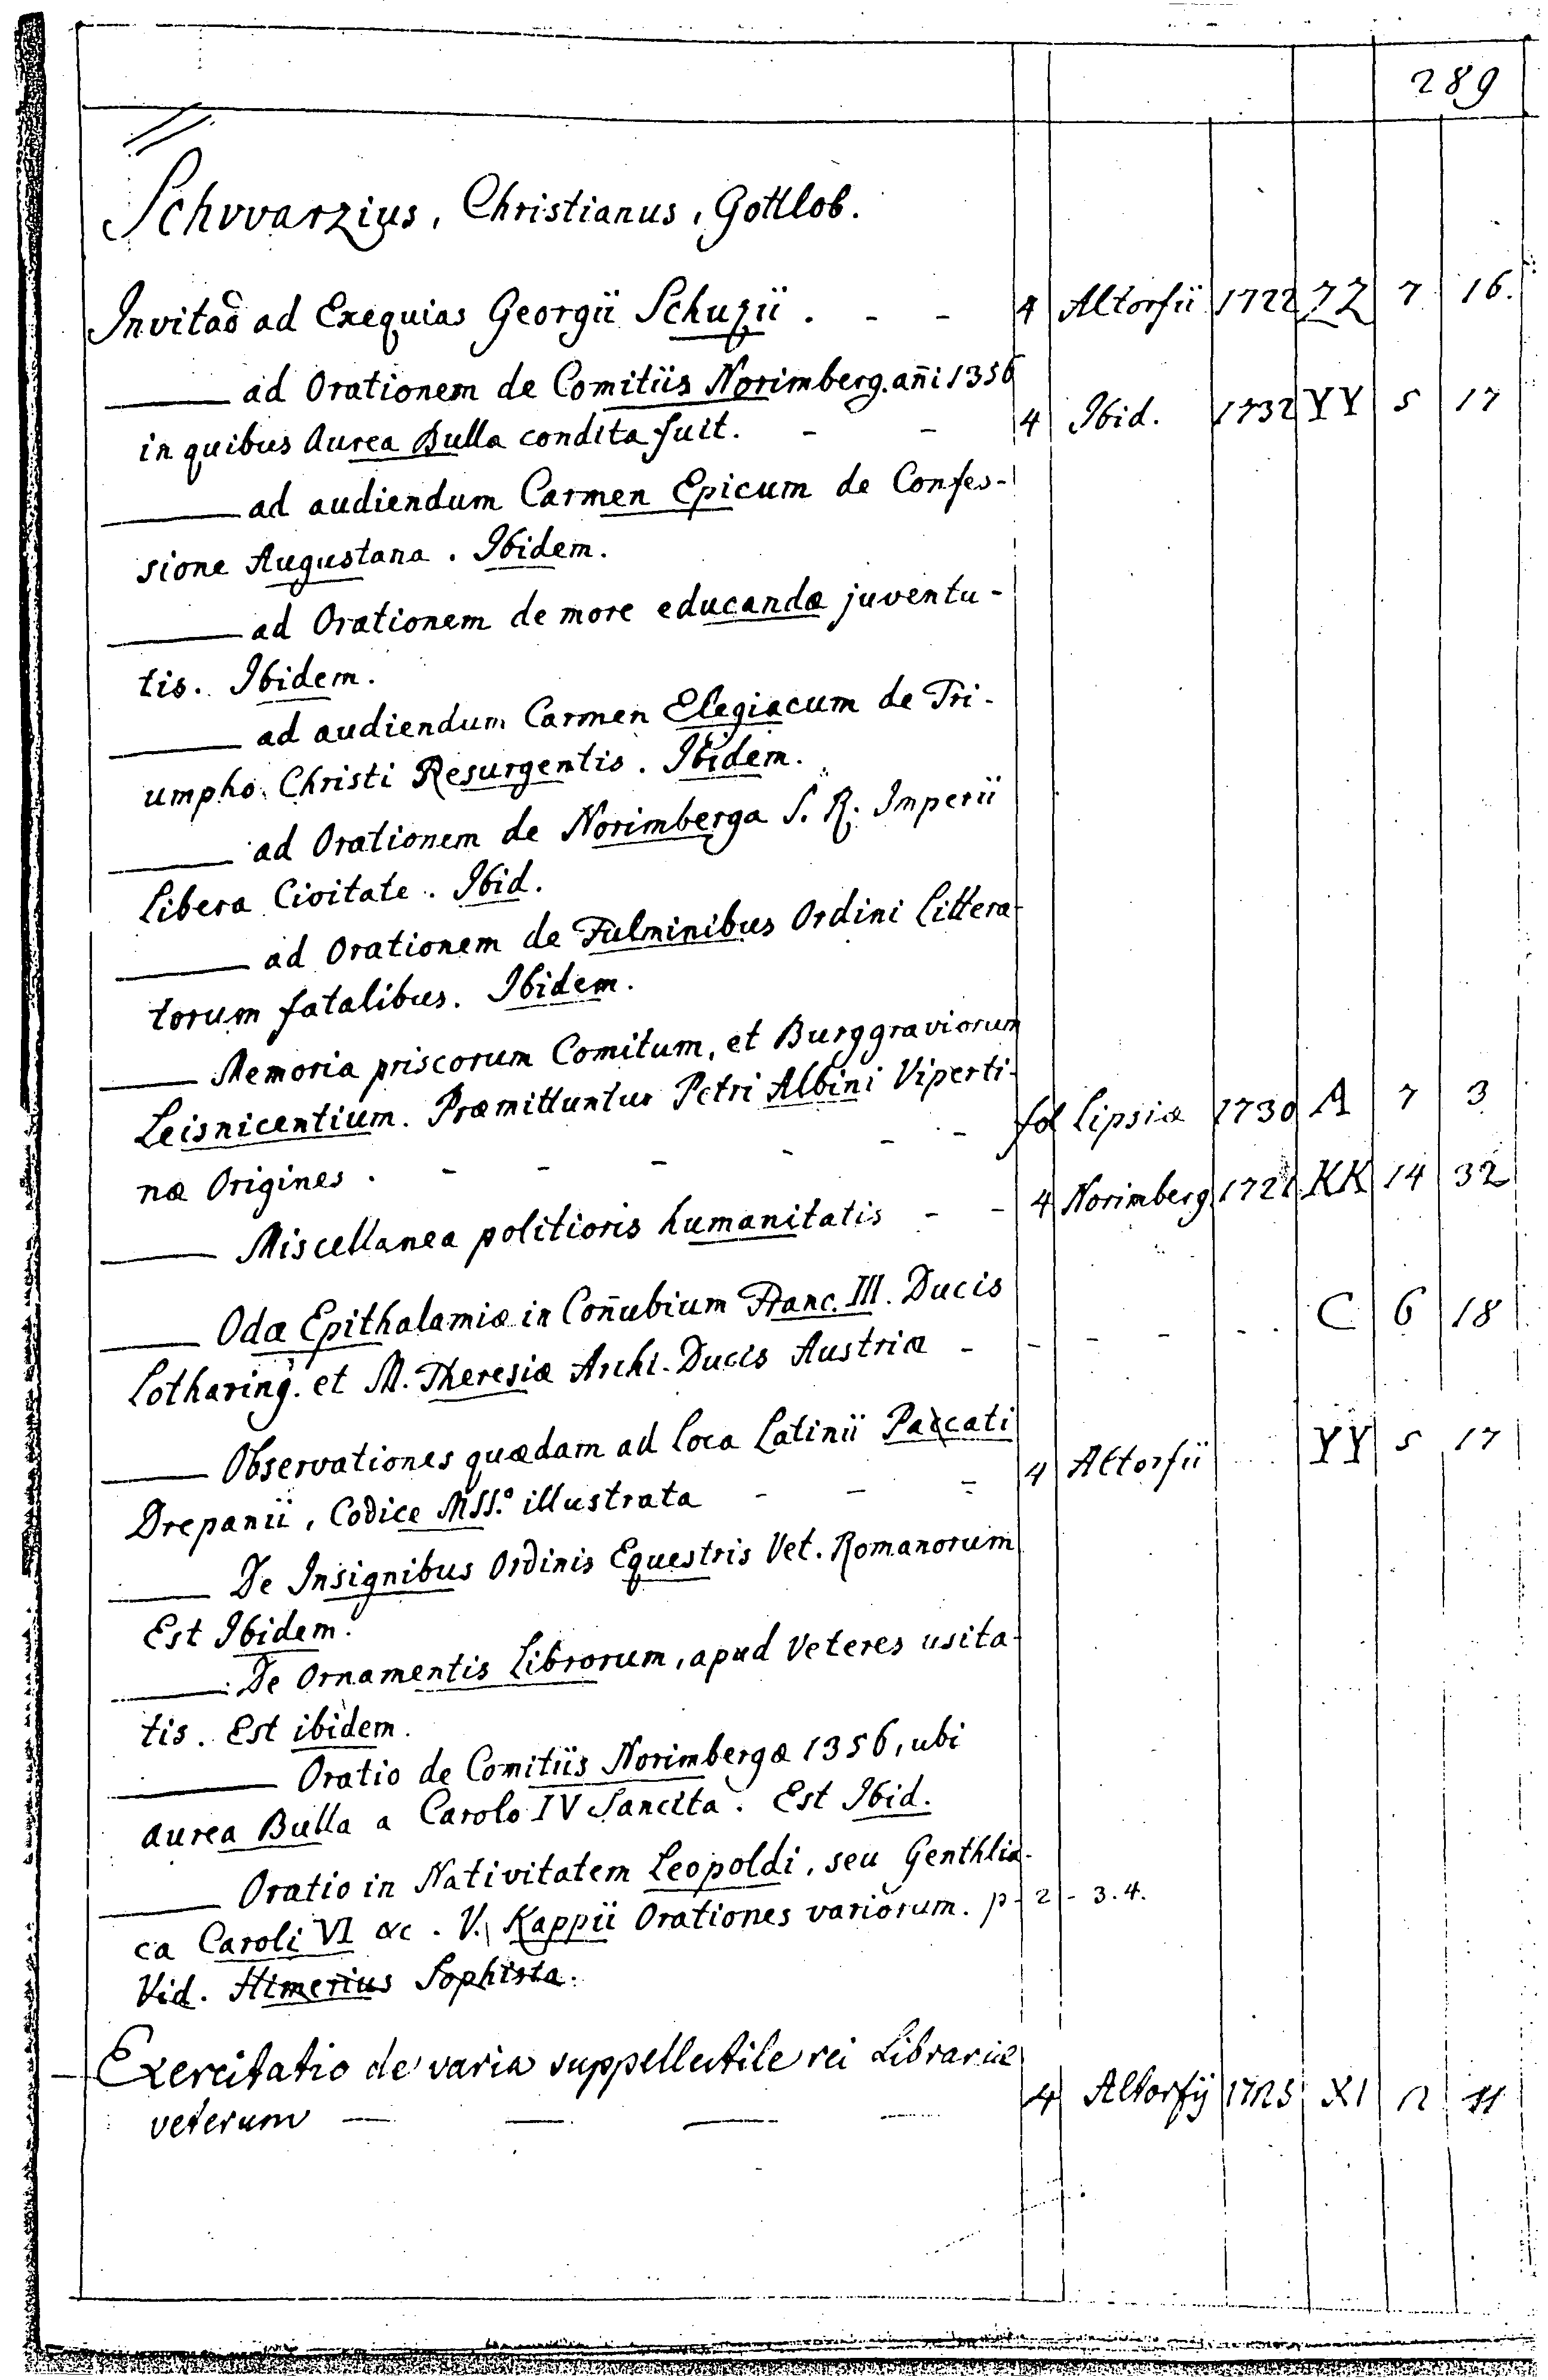 289
Schwarzius, Christianus, Gottlob.
Invitao ad Exequias Georgii Schuzii . - - 4 Altorfii 1722 ZZ 7 16.
—— ad Orationem de Comitiis Norimberg. añi 1356
in quibus Aurea Bulla condita fuit. - - 4 Ibid. 1732 YY 5 17
—— ad audiendum Carmen Epicum de Confes-
sione Augustana. Ibidem.
—— ad Orationem de more educandæ juventu-
tis. Ibidem.
—— ad audiendum Carmen Elegiacum de Tri-
umpho Christi Resurgentis. Ibidem.
—— ad Orationem de Norimberga S. R. Imperii
Libera Civitate. Ibid.
—— ad Orationem de Fulminibus Ordini Littera-
torum fatalibus. Ibidem.
—— Memoria priscorum Comitum, et Burggraviorum
Leisnicentium. Præmittuntur Petri Albini Viperti-
næ Origines. - - - - - - fol Lipsiæ 1730 A 7 3
—— Miscellanea politioris humanitatis - - 4 Norimberg 1721 KK 14 32
—— Odæ Epithalamiæ in Coñubium Franc. III. Ducis
Lotharing. et M. Theresiæ Archi-Ducis Austriæ - - - - - . C 6 18
—— Observationes quædam ad Loca Latinii Paccati
Drepanii, Codice MSS.º illustrata - - - 4 Altorfii YY 5 17
—— De Insignibus Ordinis Equestris Vet. Romanorum
Est Ibidem.
—— De Ornamentis Librorum, apud Veteres usita-
tis. Est ibidem.
—— Oratio de Comitiis Norimbergæ 1356, ubi
aurea Bulla a Carolo IV Sancita. Est Ibid.
—— Oratio in Nativitatem Leopoldi, seu Genthlia-
ca Caroli VI &c. V. Kappii Orationes variorum. p - 2 - 3. 4.
Vid. Himerius Sophista.
— Exercitatio de varia suppellectile rei Librariæ
veterum — — — — 4 Altorfij 1725 XI 2 11